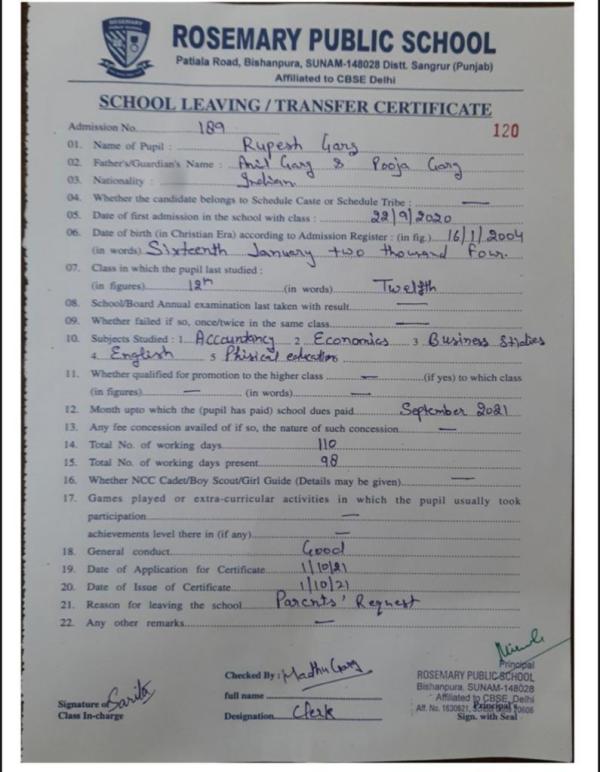 ROSEMARY PUBLIC SCHOOL
Patiala Road, Bishanpura, SUNAM-148028 Distt. Sangrur (Punjab)
Affiliated to CBSE Delhi
SCHOOL LEAVING / TRANSFER CERTIFICATE
Admission No. 189 120
01. Name of Pupil : Rupesh Garg
02. Father's/Guardian's Name : Anil Garg & Pooja Garg
03. Nationality : Indian
04. Whether the candidate belongs to Schedule Caste or Schedule Tribe : —
05. Date of first admission in the school with class : 22/9/2020
06. Date of birth (in Christian Era) according to Admission Register : (in fig.) 16/1/2004
(in words) Sixteenth January two thousand Four.
07. Class in which the pupil last studied :
(in figures) 12th (in words) Twelfth
08. School/Board Annual examination last taken with result —
09. Whether failed if so, once/twice in the same class —
10. Subjects Studied : 1. Accountancy 2. Economics 3. Business Studies
4. English 5. Phisical education
11. Whether qualified for promotion to the higher class — (if yes) to which class
(in figures) — (in words) —
12. Month upto which the (pupil has paid) school dues paid September 2021
13. Any fee concession availed of if so, the nature of such concession —
14. Total No. of working days 110
15. Total No. of working days present 98
16. Whether NCC Cadet/Boy Scout/Girl Guide (Details may be given) —
17. Games played or extra-curricular activities in which the pupil usually took
participation —
achievements level there in (if any) —
18. General conduct Good
19. Date of Application for Certificate 1/10/21
20. Date of Issue of Certificate 1/10/21
21. Reason for leaving the school Parents' Request
22. Any other remarks —
Signature of Sarita
Class In-charge
Checked By : Madhu Garg
full name
Designation Clerk
Principal
ROSEMARY PUBLIC SCHOOL
Bishanpura, SUNAM-148028
Affiliated to CBSE, Delhi
Aff. No. 1630821,
Principal's
Sign. with Seal